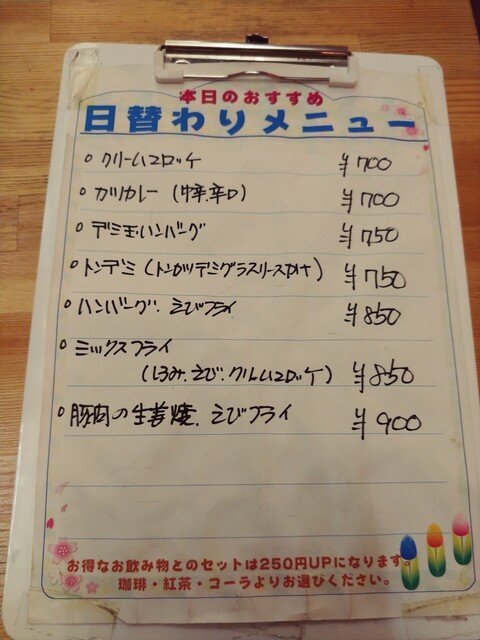 本日のおすすめ
日替わりメニュー
クリームコロッケ ¥700
カツカレー (中辛.辛口) ¥700
デミ玉ハンバーグ ¥750
トンデミ (トンカツデミグラスソースかけ) ¥750
ハンバーグ. えびフライ ¥850
ミックスフライ
(しろみ.えび.クリームコロッケ) ¥850
豚肉の生姜焼. えびフライ ¥900
お得なお飲み物とのセットは250円UPになります。
珈琲・紅茶・コーラよりお選びください。